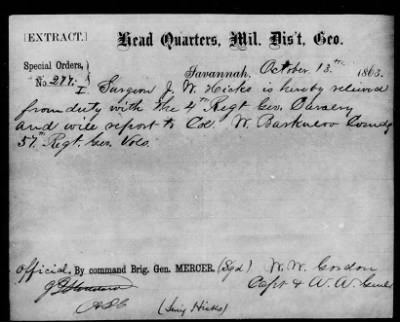 [EXTRACT.]
Head Quarters, Mil. Dis't, Geo.
Special Orders,
No. 277.
Savannah, October 13th 1863.
I. Surgeon J. W. Hicks is hereby relieved
from duty with the 4th Regt Geo. Cavalry
and will report to Col. W. Barkuloo Comdg
57th Regt. Geo. Vols.
Official, By command Brig. Gen. MERCER. (Sgd) W. W. Gordon
Capt & A. A. Genl
ADC
(Surg Hicks)